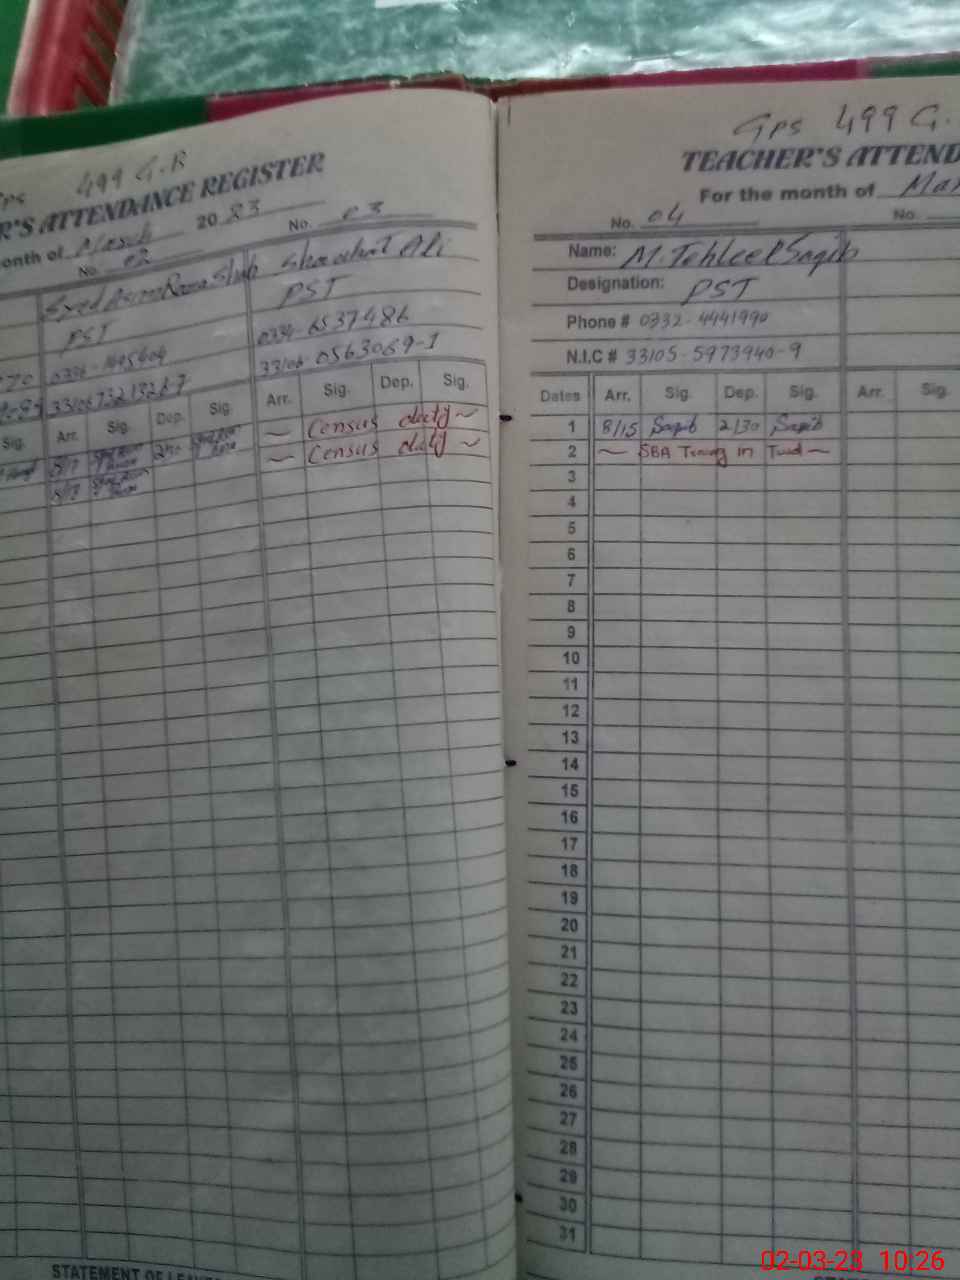 Gps 499 G.R
R'S ATTENDANCE REGISTER
onth of March 2023
No. 02 No. 03
Syed Asim Raza Shah Shoukat Ali
PST PST
0334-6537486
33106-0563069-1
Sig. Arr. Sig. Dep. Sig. Arr. Sig. Dep. Sig.
~ Census duty ~
~ Census duty ~
STATEMENT OF LEAVE
Gps 499 G.
TEACHER'S ATTEND
For the month of Mar
No. 04 No.
Name: M. Tehleel Saqib
Designation: PST
Phone # 0332-4441990
N.I.C # 33105-5973940-9
Dates Arr. Sig. Dep. Sig. Arr. Sig.
1 8/15 Saqib 2/30 Saqib
2 ~ SBA Training in Tand ~
3
4
5
6
7
8
9
10
11
12
13
14
15
16
17
18
19
20
21
22
23
24
25
26
27
28
29
30
31
02-03-23 10:26